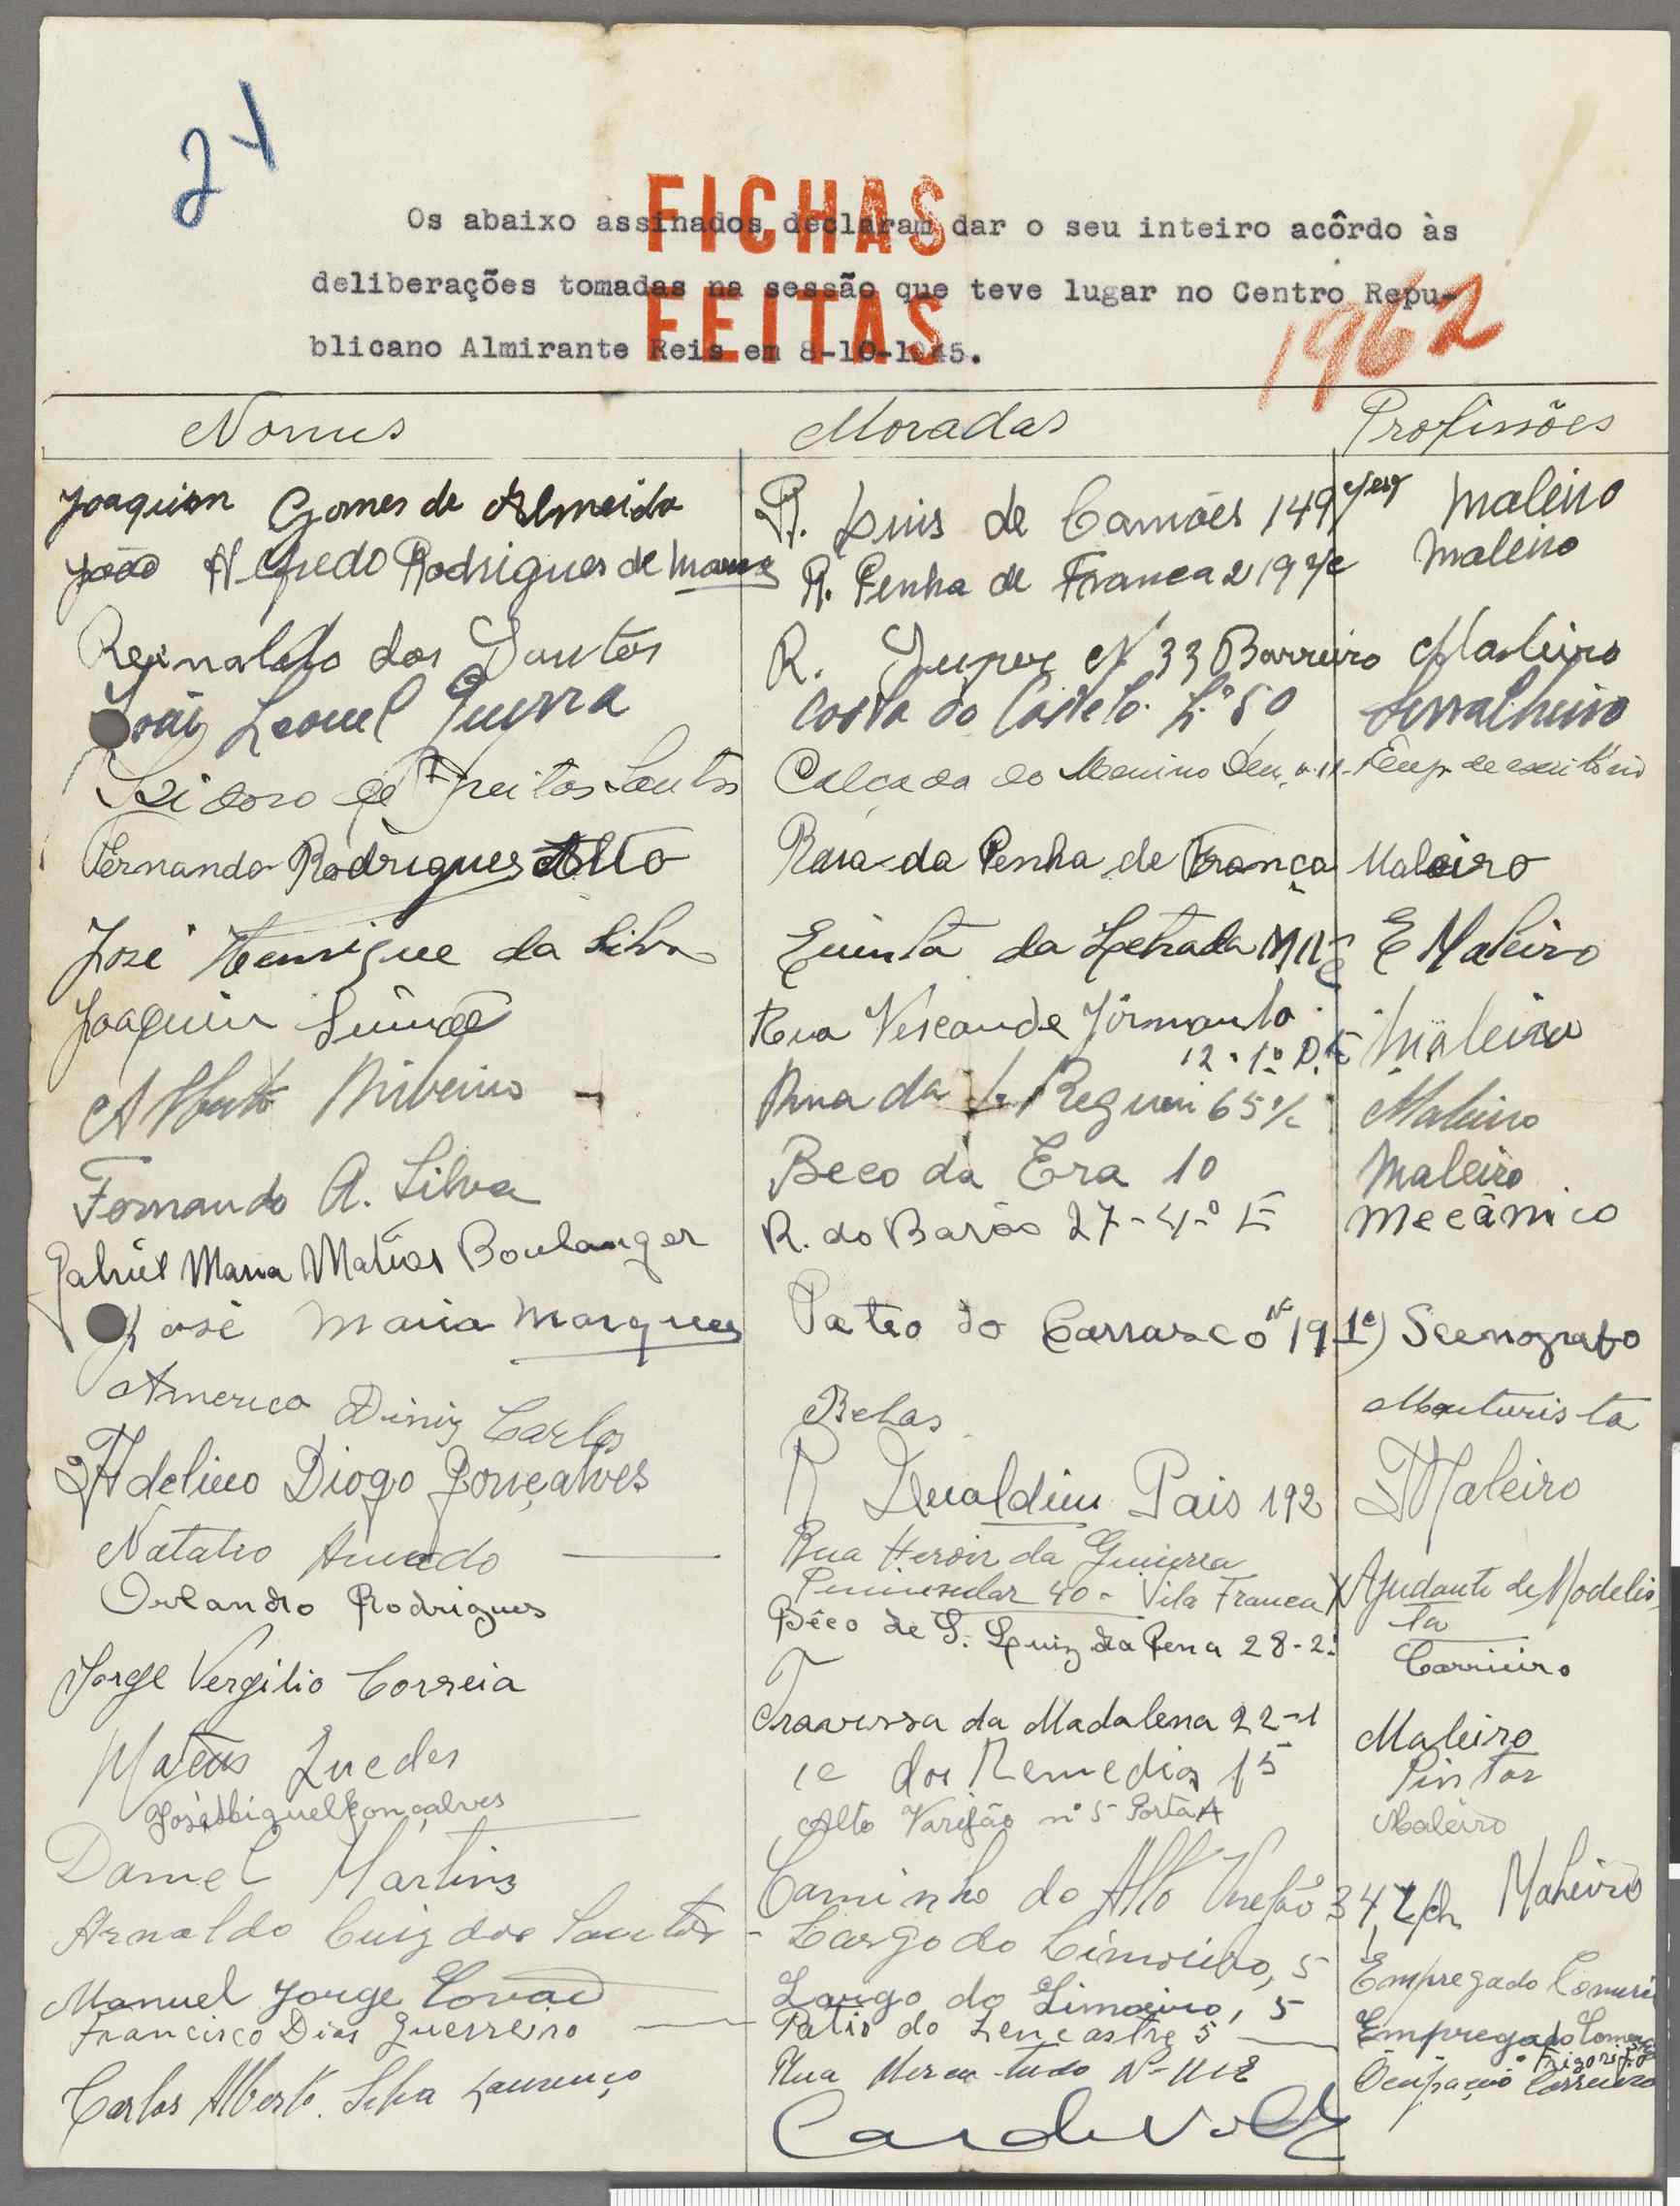 24
FICHAS
FEITAS
Os abaixo assinados declaram dar o seu inteiro acôrdo às
deliberações tomadas na sessão que teve lugar no Centro Repu-
blicano Almirante Reis em 8-10-1945.
1962
Nomes Moradas Profissões
Joaquim Gomes de Almeida R. Luis de Camões 149 Maleiro
João Alfredo Rodrigues de R. Penha de Franca 219 r/c Maleiro
Reinaldo dos Santos R. Nº 33 Barreiro Maleiro
João Leonel Guerra Costa do Castelo 50 Serralheiro
Isidoro de Freitas Santos Calçada do Menino Deus Emp. de escritório
Fernando Rodrigues Alto Rua da Penha de França Maleiro
José Henrique da Silva Quinta da E Maleiro
Joaquim Simões Rua Visconde 12-1º D. Maleiro
Alberto Ribeiro Rua da 65 r/c Maleiro
Fernando A. Silva Beco da Era 10 Maleiro
Gabriel Maria Matias Boulanger R. do Barão 27-4º E Mecânico
José Maria Marques Pateo do Carrasco Nº 19 1º Scenografo
Americo Diniz Carlos Belas
Adelino Diogo Gonçalves R Gualdim Pais 192 Maleiro
Natalio Amado Rua Herois da Guierra
Peninsular 40 - Vila Franca X Ajudante de Modelis
ta
Orlandro Rodrigues Bêco de S. Luiz da Pena 28-2º Carrieiro
Jorge Vergilio Correia Travessa da Madalena 22-1 Maleiro
Mateus Guedes dos Remedios 15 Pintor
José Miguel Gonçalves Alto Varejão nº 5 Porta A Maleiro
Daniel Martins Caminho do Alto Varejão 34 Maleiro
Arnaldo Luiz dos Santos - Largo do Limoeiro, 5 Empregado
Manuel Jorge Largo do Limoeiro, 5 Empregado
Francisco Dias Guerreiro Patio do Lencastre 5
Carlos Alberto Silva Lourenço Rua